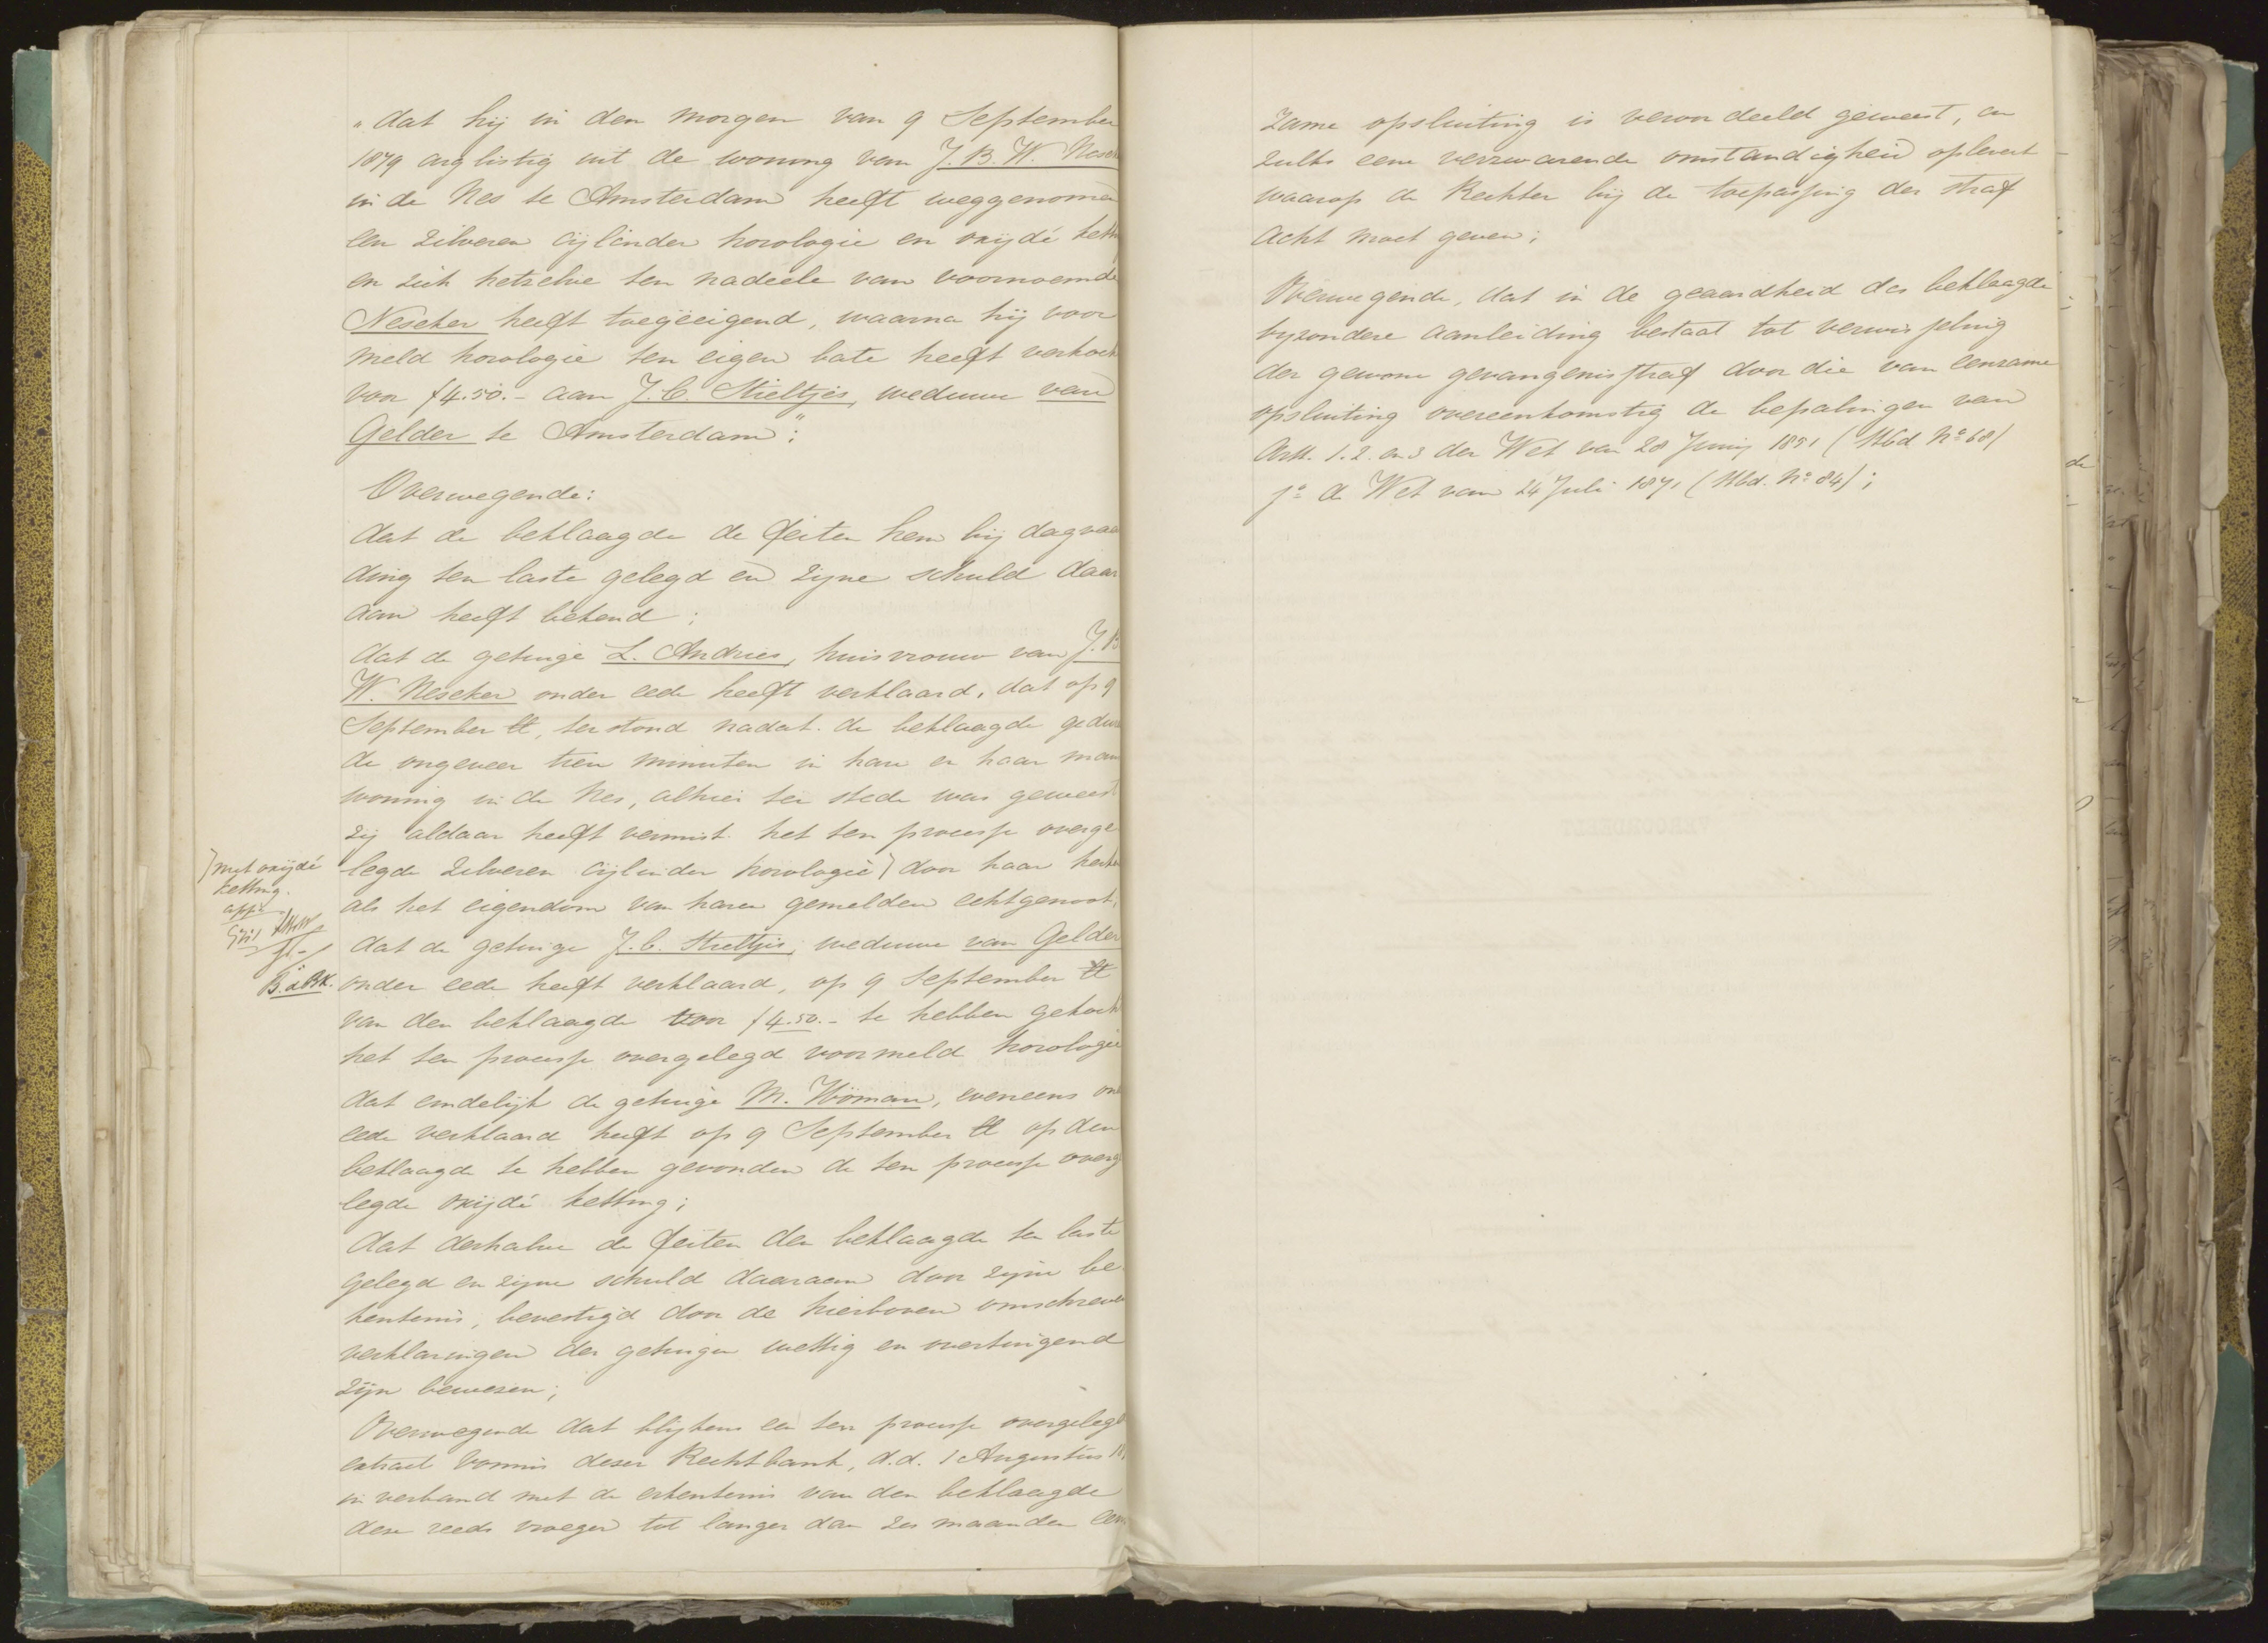 „dat hij in den morgen van 9 September
1879 arglistig uit de woning van J. B. W. Nesek
in de Nes te Amsterdam heeft weggenomen
een zilveren cijlinder horologie en oxijdé kett
en zich hetzelve ten nadeele van voornoemde
Neseker heeft toegeëigend, waarna hij voor
meld horologie ten eigen bate heeft verkoch
voor ƒ4.50.- aan J. C. Stieltjes, weduwe van
Gelder te Amsterdam";
Overwegende:
dat de beklaagde de feiten hem bij dagvaa
ding ten laste gelegd en zijne schuld daar
aan heeft bekend;
dat de getuige L. Andries, huisvrouw van J. B
W. Neseker onder eede heeft verklaard, dat op 9
September ll, terstond nadat de beklaagde gedur
de ongeveer tien minuten in hare en haar man
woning in de Nes, alhier ter stede was geweest
zij aldaar heeft vermist het ten processe overge
legde zilveren cijlinder horologie) door haar herke
als het eigendom van haren gemelden echtgenoot,
dat de getuige J. C. Stieltjes, weduwe van Gelder
onder eede heeft verklaard, op 9 September ll
van den beklaagde voor ƒ4.50.- te hebben gekocht
het ten processe overgelegd voormeld horologie
dat eindelijk de getuige M. Wöman, eveneens on
eede verklaard heeft op 9 September ll op den
beklaagde te hebben gevonden de ten processe overg
legde oxijdé ketting;
dat derhalve de feiten den beklaagde ten laste
gelegd en zijne schuld daaraan door zijne be
kentenis, bevestigd door de hierboven omschreven
verklaringen der getuigen wettig en overtuigend
zijn bewezen;
Overwegende dat blijkens een ten processe overgelegd
extract vonnis dezer Rechtbank, d.d. 1 Augustus 18
in verband met de erkentenis van den beklaagde
deze reeds vroeger tot langer dan zes maanden een
) met oxijdé
ketting.
appé
B. a Brk.
zame opsluiting is veroordeeld geweest, en
zulks eene verzwarende omstandigheid oplevert
waarop de Rechter bij de toepassing der straf
acht moet geven;
Overwegende, dat in de geaardheid des beklaagde
byzondere aanleiding bestaat tot verwisseling
der gewone gevangenisstraf door die van eenzame
opsluiting overeenkomstig de bepalingen van
Artt. 1. 2. en 3 der Wet van 28 Junij 1851 (Stbd No 68)
jo de Wet van 24 Juli 1871 (Stbd. No 84);